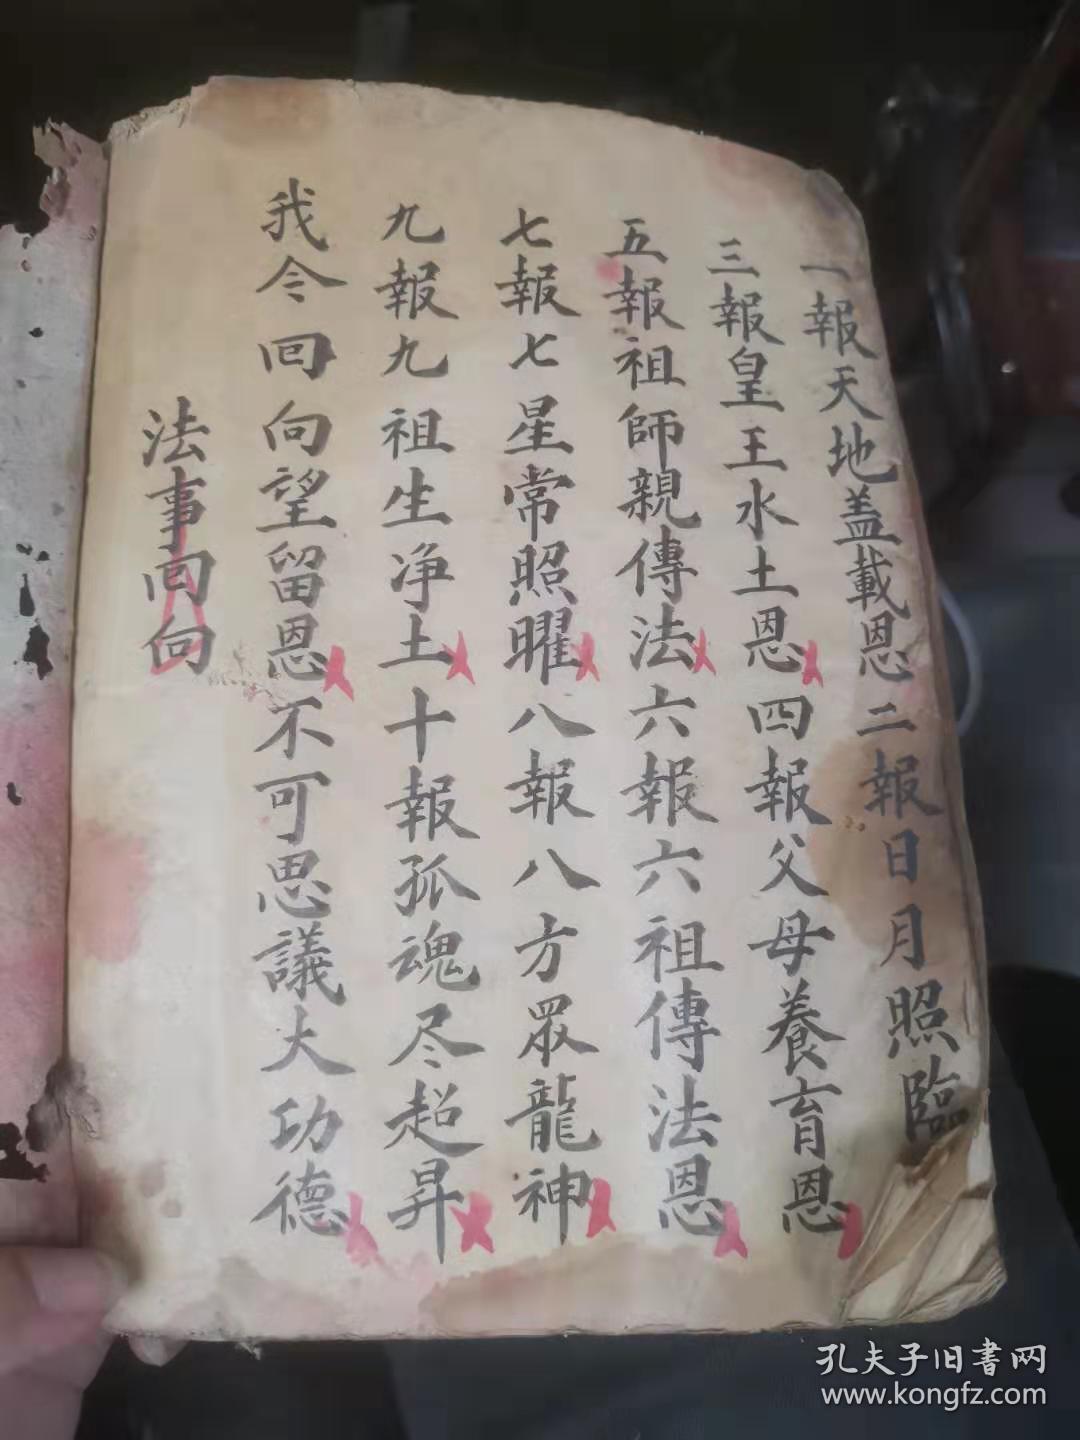 一報天地盖載恩二報日月照臨
三報皇王水土恩四報父母養育恩
五報祖師親傳法六報六祖傳法恩
七報七星常照曜八報八方眾龍神
九報九祖生净土十報孤魂尽超昇
我今回向望留恩不可思議大功德
法事回向
孔夫子旧書网
www.kongfz.com